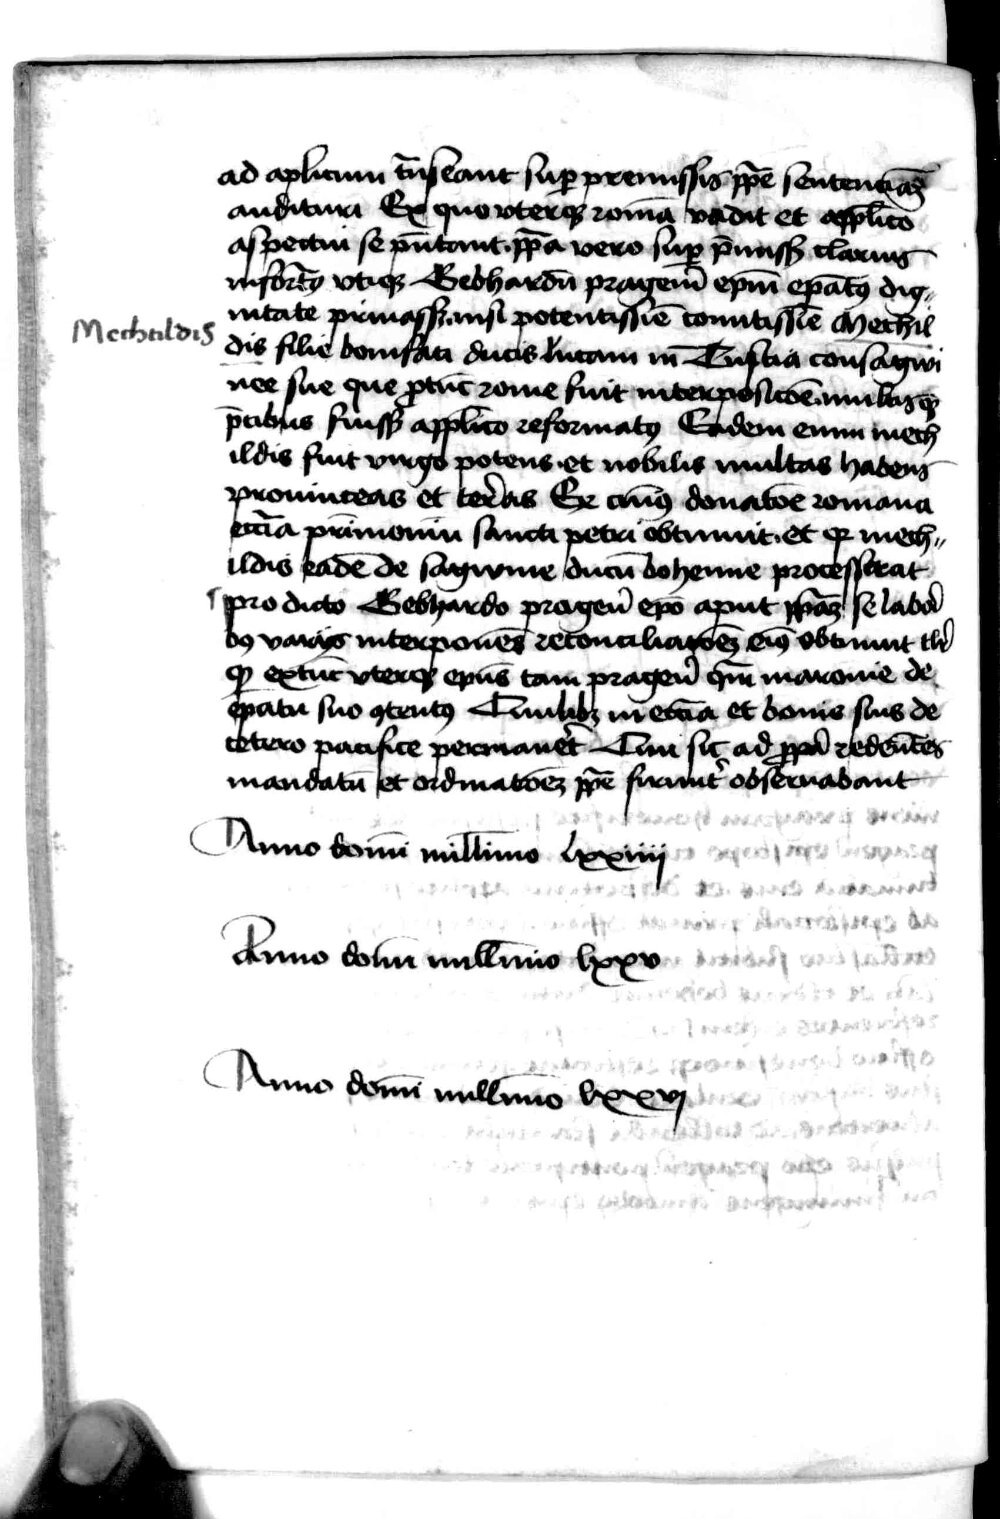 ad aplicum t̄nseant sup̱ premissis pp̄e sentenciā
audituri Ex quo uterq; romā vadit et appl̄ico
aspectui se p̄ntant. pp̄a vero sup̱ p̄miss; clarius
Gebhardū pragen̄ ep̄m ep̄at9 dig„
nitate nisi potentissīe comitissīe Mechil
Mechtildis
dis filie bonifati ducis lucani in Tuscia consagwi
nee sue que p̱tūc rome fuit interposicōe. multisq;
p̄cibus fuiss; appl̄ico reformat9 Eadem enim mech
ildis fuit virgo potens. et nobilis multas habens
prouinceas et ter̄as Ex cui9 donatōe romana
ecc̄ia p̄rimoniū sancti petri obtinuit. et q̱ mech„
ildis eadē de sagwine ducū bohemie processerat
pro dicto Gebhardo pragen̄ ep̄o aput pp̄am se labori
b9 varijs interponens reconciliatōez ei9 obtinuit
q̱ extūc uterq; ep̄us tam pragen̄ q̄m morauie de
ep̄atu suo 9tent9 in ecc̄ia et bonis suis de
cetero pacifice permaner̄et Qui sic ad p̱p̱a redeūtes
mandatū et ordinatōez pp̄e firmit̄ obseruabant
Anno domī millīmo lxxiiii
Anno domī millīmo lxxv
Anno domī millīmo lxxvi